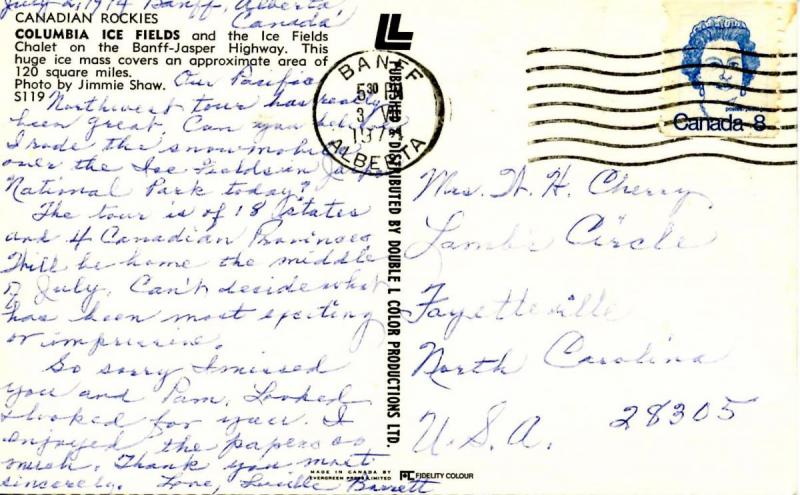 July 2, 1974 Banff, Alberta,
Canada
CANADIAN ROCKIES
COLUMBIA ICE FIELDS and the Ice Fields
Chalet on the Banff-Jasper Highway. This
huge ice mass covers an approximate area of
120 square miles.
Photo by Jimmie Shaw.
S119
Our Pacific
Northwest tour has really
been great. Can you believe
I rode the snow-mobile
over the Ice Fields in Jasper
National Park today?
The tour is of 18 States
and 4 Canadian Provinces
Will be home the middle
of July. Can't decide what
has been most exciting
or impressive.
So sorry I missed
you and Pam. Looked
& looked for you. I
enjoyed the papers so
much. Thank you most
sincerely. Love, Lucille Barrett
BANFF
5 30
3 VII
1974
ALBERTA
PUBLISHED & DISTRIBUTED BY DOUBLE L COLOR PRODUCTIONS LTD.
Canada 8
Mrs. W. H. Cherry
Lambs Circle
Fayetteville
North Carolina
U.S.A. 28305
MADE IN CANADA BY
EVERGREEN PRESS LIMITED
FIDELITY COLOUR